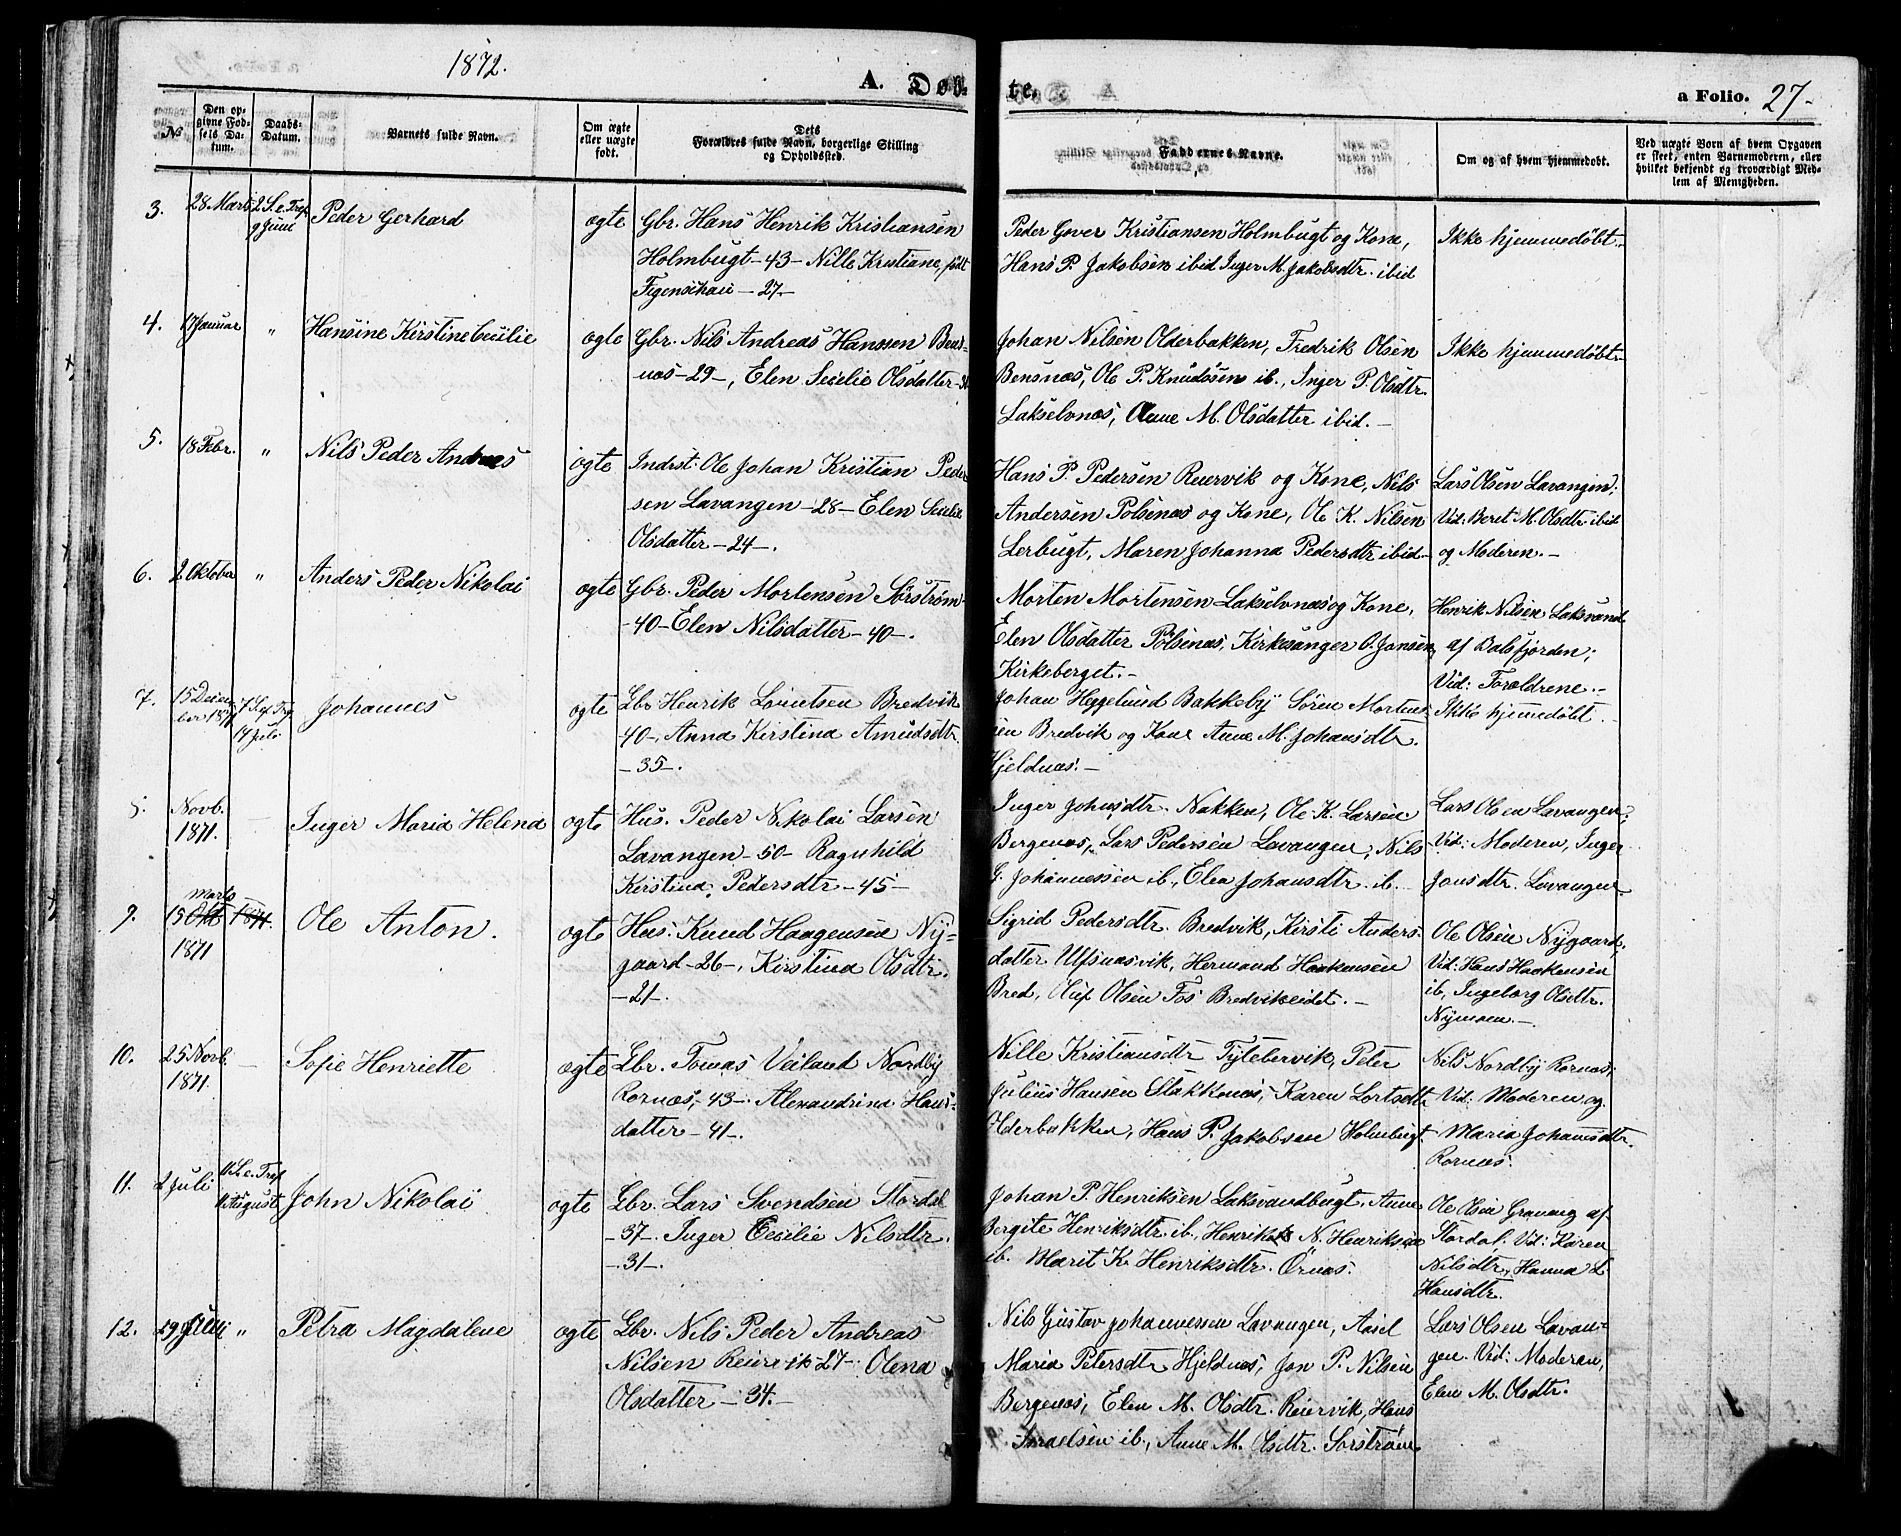 1872.
A. Døb-
te,
a Folio. 27-
No
Den op-
givne Fød-
sels Da-
tum.
Daabs-
Datum.
Barnets fulde Navn.
Om ægte
eller uægte
født.
Dets
Forældres fulde Navn, borgerlige Stilling
og Opholdssted.
Faddernes Navne.
Om og af hvem hjemmedøbt.
Ved uægte Børn af hvem Opgaven
er skeet, enten Barnemoderen, eller
hvilket bekjendt og troværdigt Med-
lem af Menigheden.
3. 28 Marts 2 S. e. Tref. 9 Juni Peder Gerhard ægte Gbr. Hans Henrik Kristiansen
Holmbugt - 43 - Nille Kristiane, født
Figenschau - 27 -
Peder Gover Kristiansen Holmbugt og Kone,
Hans P. Jakobsen ibid Inger M. Jakobsdtr. ibid
Ikke hjemmedøbt.
4. 17 Januar " Hansine Kirstine Cecilie ægte Gbr. Nils Andreas Hanssen Bens-
næs - 29 -, Elen Secilie Olsdatter -
Johan Nilsen Olderbakken, Fredrik Olsen
Bensnæs, Ole P. Knudssen ib., Inger P. Olsdtr.
Lakselvnæs, Anne M. Olsdatter ibid. -
Ikke hjemmedøbt
5. 18 Febr. " Nils Peder Andreas ægte Indrst. Ole Johan Kristian Peder
sen Lavangen - 28 - Elen Secilie
Olsdatter - 24 -.
Hans P. Pedersen Reiervik og Kone, Nils
Andersen Polsenæs og Kone, Ole K. Nilsen
Lerbugt, Maren Johanna Pedersdtr ibid -
Lars Olsen Lavangen;
Vid: Beret M. Olsdtr ibid
og Moderen. -
6. 2 Oktober " Anders Peder Nikolai ægte Gbr. Peder Mortensen Sørstrøm
- 40 - Elen Nilsdatter - 40 -.
Morten Mortensen Lakselvnæs og Kone,
Elen Olsdatter Polsenæs, Kirkesanger O. Jansen,
Kirkeberget. -
Henrik Nilsen Laksvand
af Balsfjorden;
Vid: Forældrene. -
7. 15 Decem-
ber 1871 7 S. ef. Tref. 14 Juli Johannes ægte Gbr Henrik Lorentsen Bredvik
- 40 -, Anna Kirstina Amundsdtr.
- 35 -.
Johan Heggelund Bakkeby Søren Morten-
sen Bredvik og Kone Anne M. Johansdtr.
Hjeldnæs. -
Ikke hjemmedøbt.
8. Novb.
1871. - Inger Maria Helena ægte Hus. Peder Nikolai Larsen
Lavangen - 50 - Ragnhild
Kirstina Pedersdtr - 45 -
Inger Johnsdtr. Nakken, Ole K. Larsen
Bergenæs, Lars Pedersen Lavangen, Nils
G. Johannessen ib., Elen Johansdtr. ib.
Lars Olsen Lavangen;
Vid: Moderen, Inger
Jonsdtr. Lavangen
9. Marts
15 Okt 1871.
1871 Ole Anton. ægte Hus. Knud Haagensen Ny-
gaard - 26 -, Kirstina Olsdtr.
- 21 -.
Sigrid Pedersdtr. Bredvik, Kirsti Anders-
datter Ulfsnæsvik, Hermand Haakensen
Bred, Oluf Olsen Fos Bredvikeidet. -
Ole Olsen Nygaard,
Vid: Hans Haakensen
ib, Ingeborg Olsdtr.
Nymoen. -
10. 25 Novb.
1871. - Sofie Henriette ægte Gbr. Tomas Veiland Nordby
Rornæs, - 43 -. Alexandrina Hans-
datter - 41 -.
Nille Kristiansdtr Tytebervik, Peter
Julius Hansen Stakkenæs, Karen Lortsdtr
Olderbakken, Hans P. Jakobsen Holmbugt.
Nils Nordby Rornæs;
Vid: Moderen og
Maria Johansdtr.
Rornæs.
11. 2 Juli 11 S. e. Tref. 11 August John Nikolai ægte Gbr. Lars Svendsen Stordal
- 37 -. Inger Cecilie Nilsdtr.
- 31 -.
Johan P. Henriksen Laksvandbugt, Anne
Bergite Henriksdtr. ib., Henrik N. Henriksen
ib. Marit K. Henriksdtr. Örnæs.
Ole Olsen Gravang af
Stordal. Vid: Karen
Nilsdtr, Hanna L
Hansdtr.
12. 29 Juni " Petra Magdalene ægte Gbr. Nils Peder Andreas
Nilsen Reiervik - 27 -: Olena
Olsdatter - 34. -
Nils Gustav Johannessen Lavangen, Aasel
Maria Petersdtr Hjeldnæs, Jon P. Nilsen
Bergenæs, Elen M. Olsdtr. Reiervik, Hans
Israelsen ib., Anne M. Olsdtr. Sørstrøm
Lars Olsen Lavan-
gen. Vid: Moderen,
Elen M. Olsdtr.